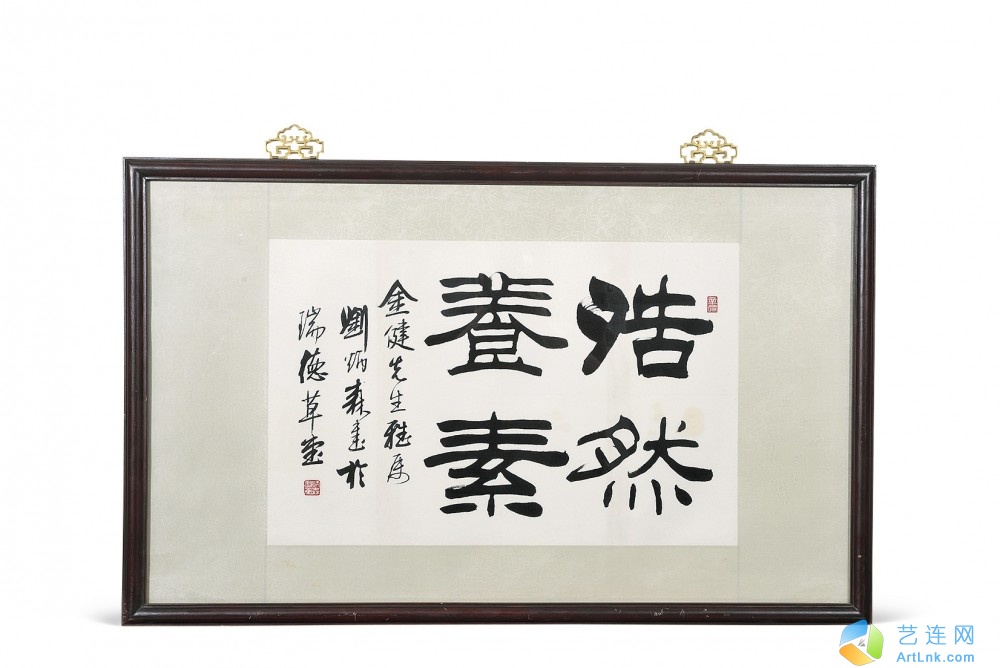 浩然
養素
金健先生雅属
劉炳森書於
瑞德草堂
艺连网
ArtLnk.com